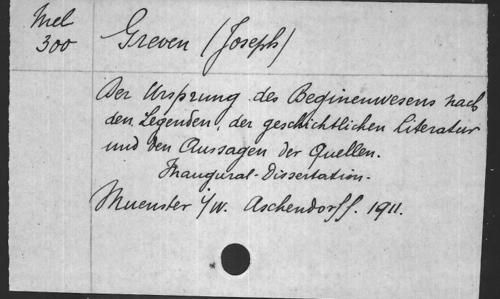 Mel
300
Greven (Joseph)
Der Ursprung des Beginenwesens nach
den Legenden, der geschichtlichen Literatur
und den Aussagen der Quellen.
Inaugural-Dissertation.
Muenster i/W. Aschendorff. 1911.